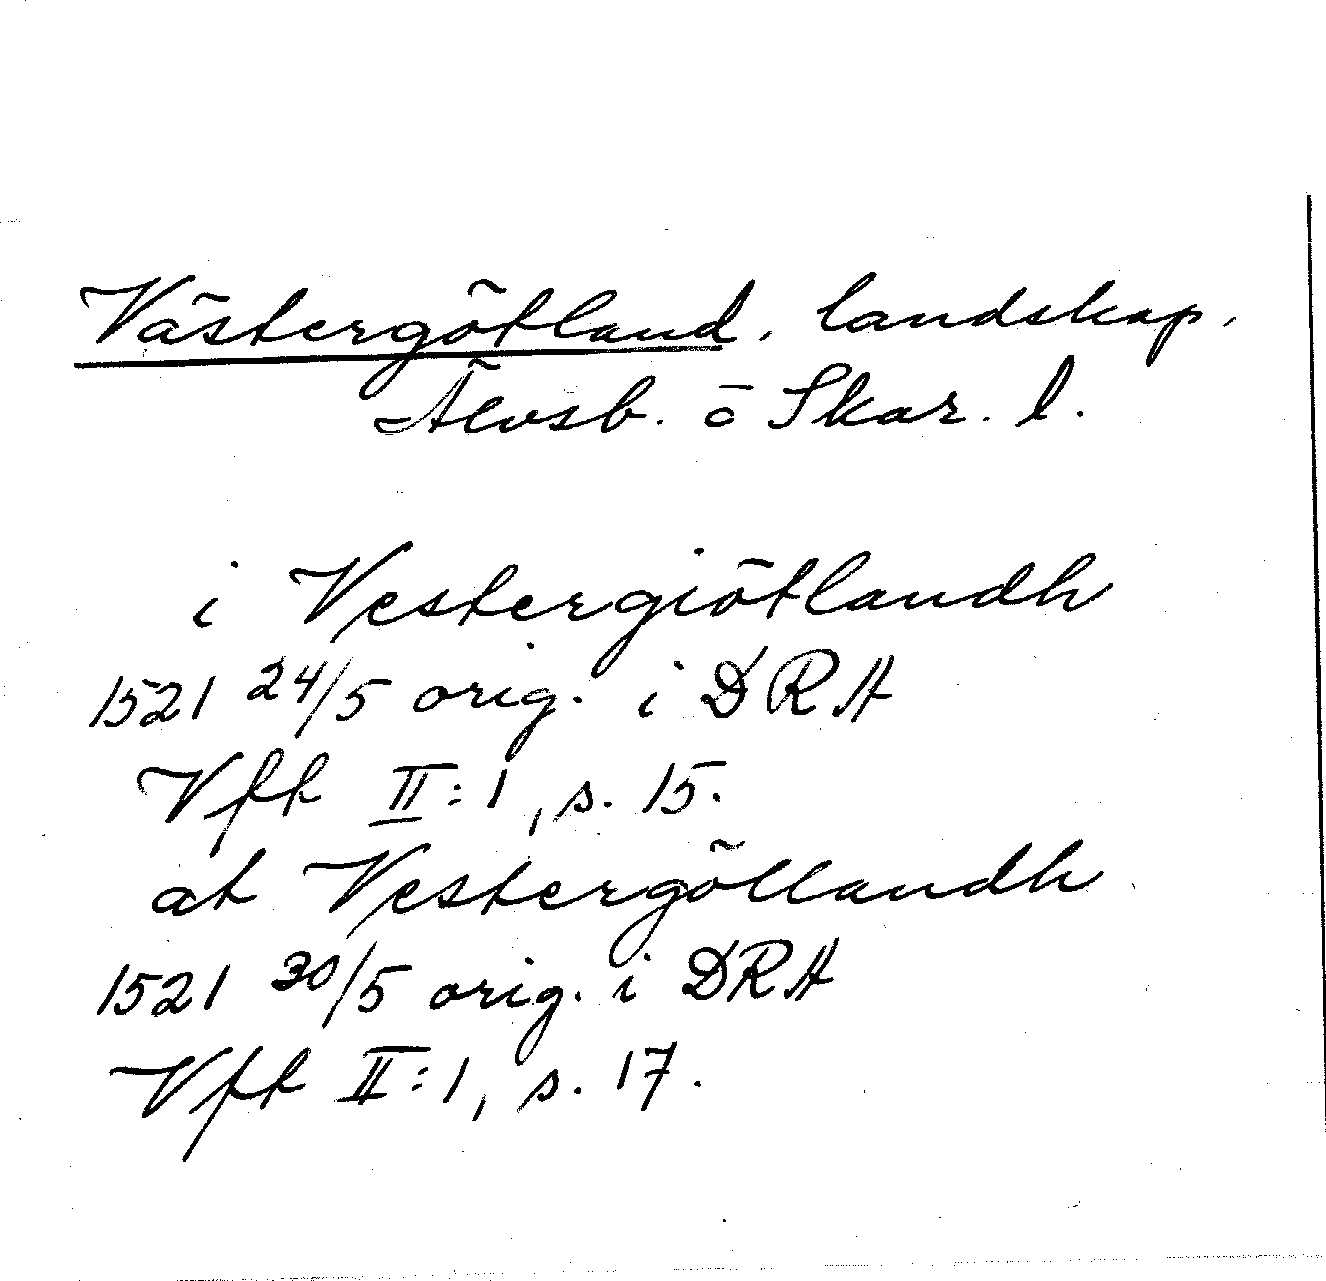 Västergötland, landskap,
Älvsb. o Skar. l.
i Vestergiötlandh
1521 24/5 orig. i DRA
Vft II:1, s. 15.
at Vestergöllandh
1521 30/5 orig. i DRA
Vft II:1, s. 17.